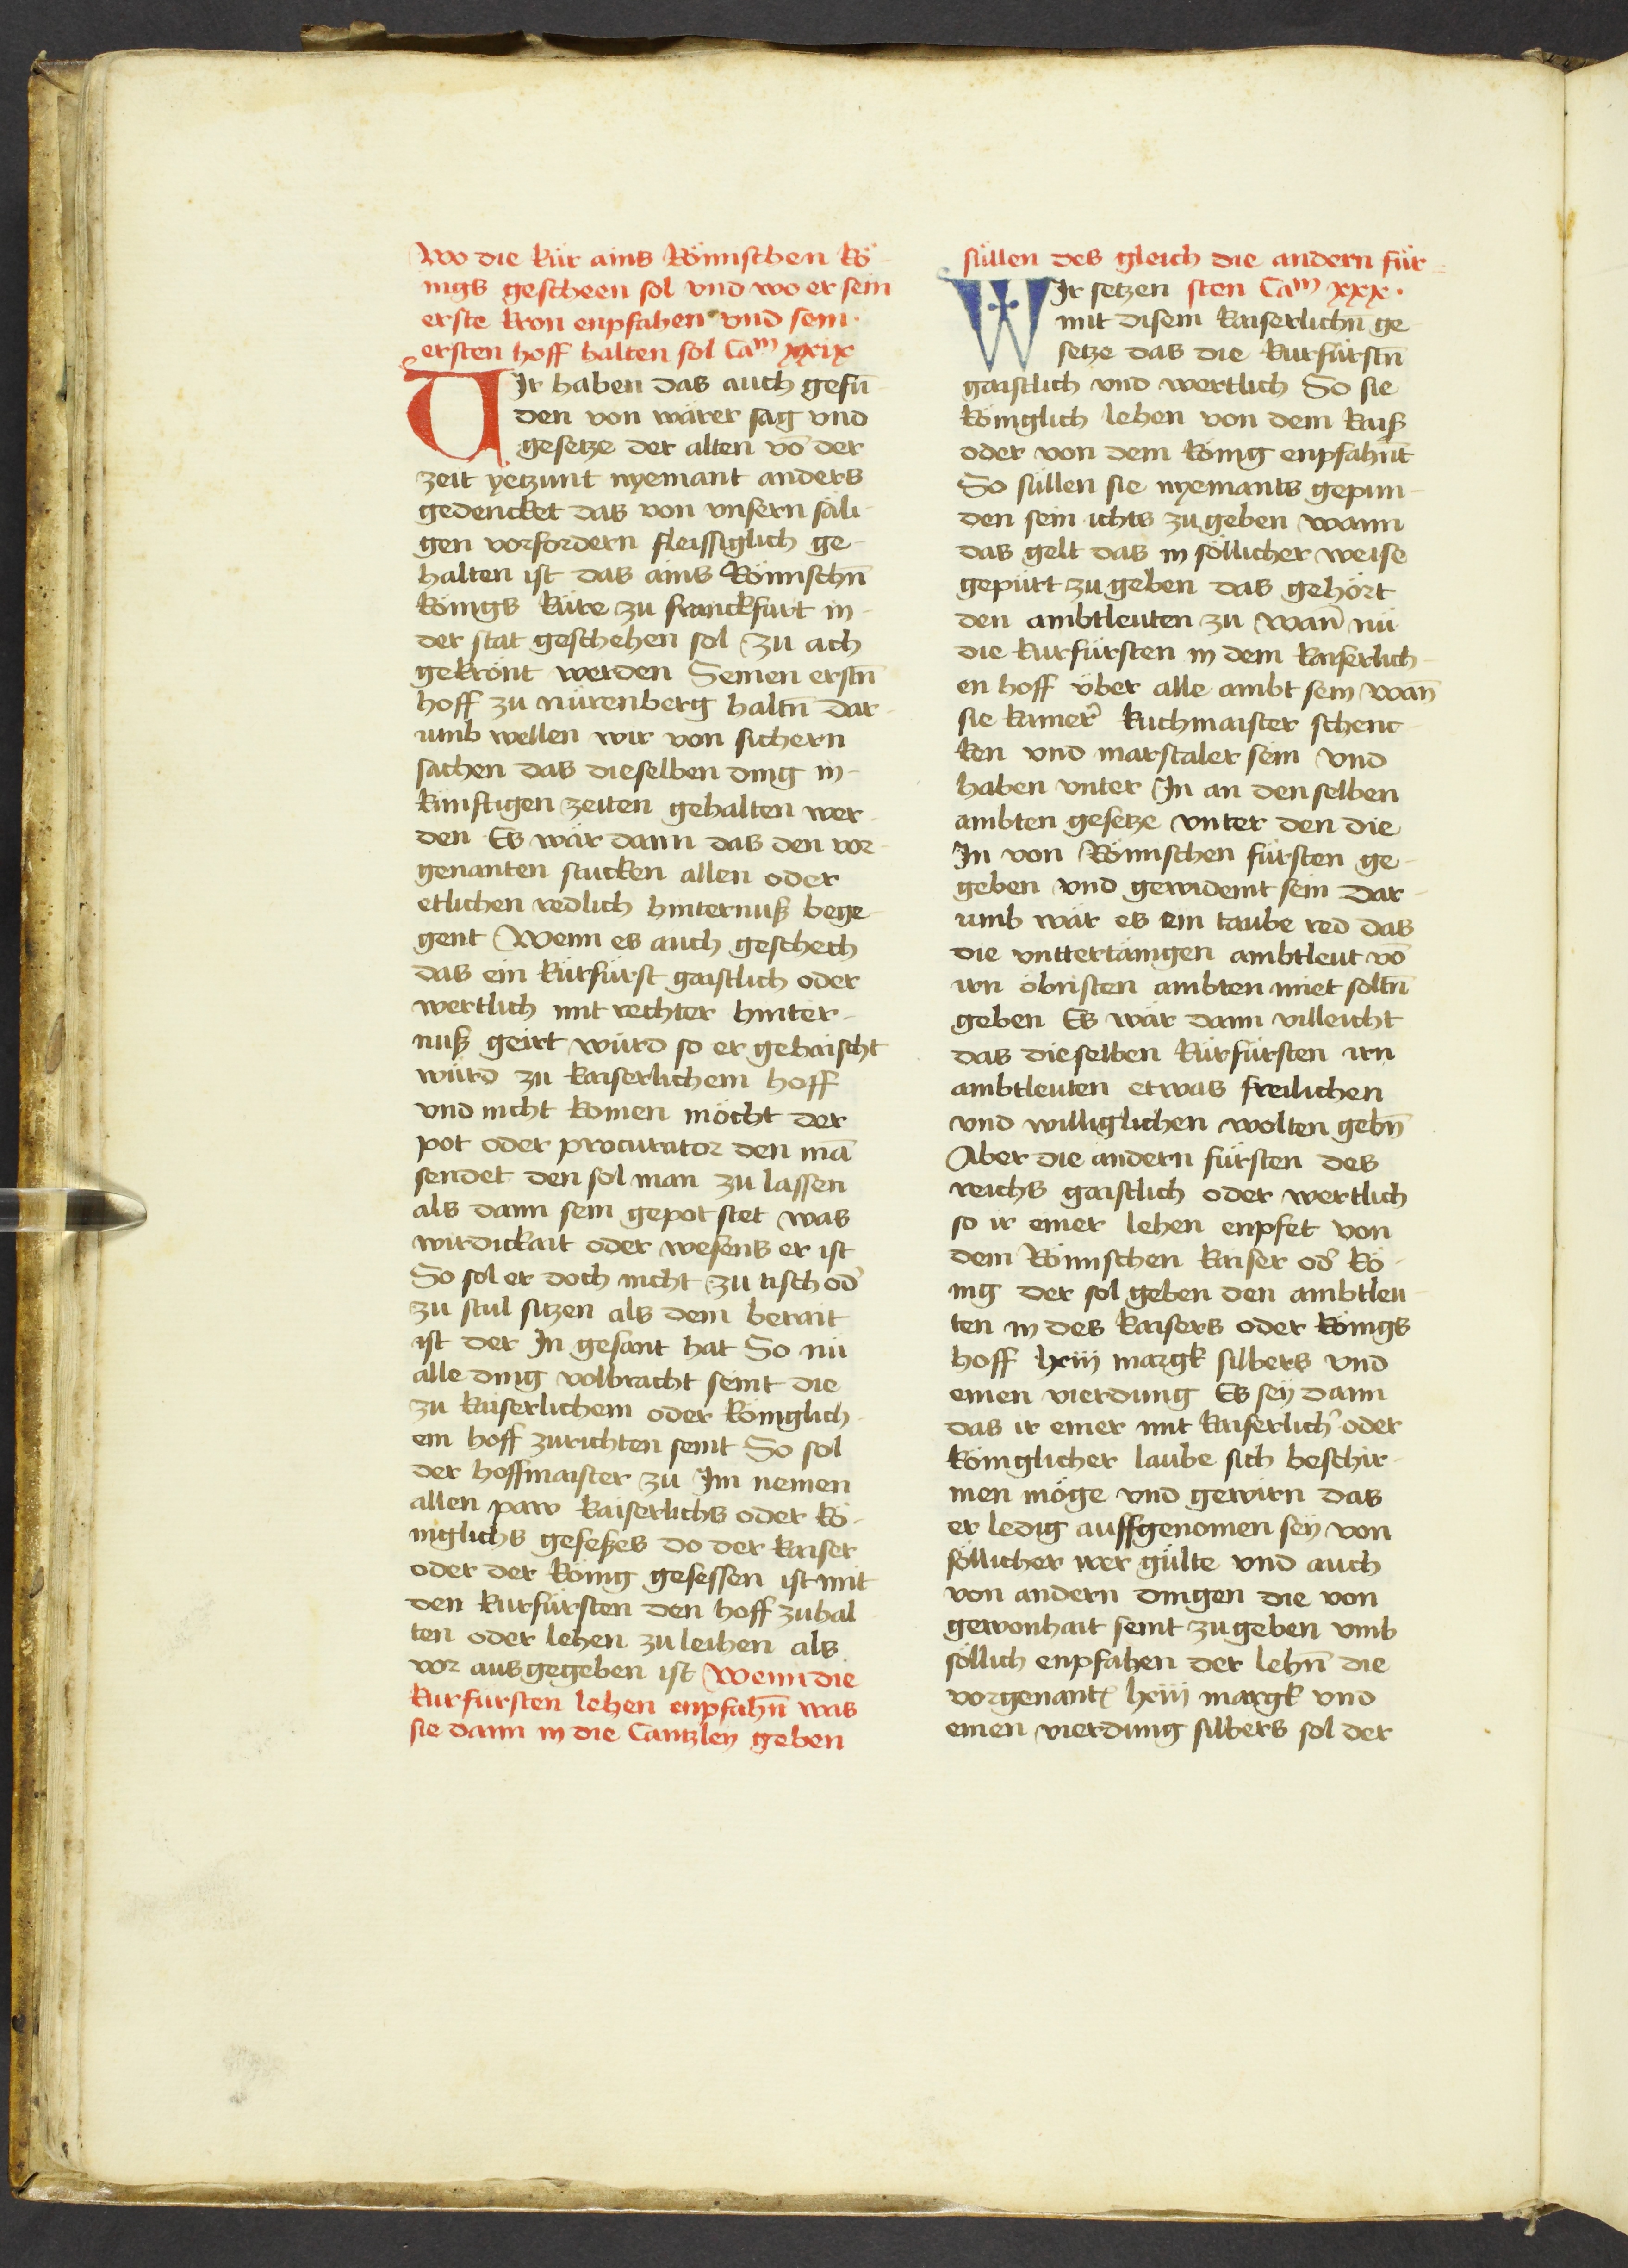 Wo die kür ains Römischen kö-
nigs gescheen sol vnd wo er sein
erste kron enpfahen vnd sein
ersten hoff halten sol Cam xxix
UIr haben das auch gefū-
den von wärer sag vnd
gesetze der alten vō der
zeit yetzunt nyemant anders
gedencket das von vnsern säli-
gen vorfordern fleissiglich ge-
halten ist das ains Römischn̄
königs küre zu franckfurt in
der stat geschehen sol zu ach
gekrönt werden Seinen erstn̄
hoff zu nürenberg haltn̄ Dar-
umb wellen wir von sichern
sachen das dieselben ding in
künftigen zeiten gehalten wer-
den Es wär dann das den vor-
genanten stucken allen oder
etlichen redlich hinternuß bege-
gent Wenn es auch geschech
das ein kürfürst gaistlich oder
wertlich mit rechter hinter-
nuß geirt würd so er gehaischt
würd zu kaiserlichem hoff
vnd nicht komen möcht der
pot oder procurator den mā
sendet den sol man zu lassen
als dann sein gepot stet was
wirdickait oder wesens er ist
So sol er doch nicht zu tisch od̾
zu stul sitzen als dem berait
ist der In gesant hat So nü
alle ding volbracht seint die
zu kaiserlichem oder königlich-
em hoff zurichten seint So sol
der hoffmaister zu Im nemen
allen paw kaiserlichs oder kö-
niglichs geseßes do der kaiser
oder der König gesessen ist mit
den kurfürsten den hoff zuhal
ten oder lehen zu leihen als
vor ausgegeben ist Wenn die
kurfürsten lehen enpfahn̄ was
sie dann in die Cantzley geben
süllen des gleich die andern für-
WIr setzen sten Cam xxx.
mit disem kaiserlichn̄ ge
setze das die kurfürstn̄
gaistlich vnd wertlich So sie
königlich lehen von dem kaiß
oder von dem König enpfahn̄t
So süllen sie nyemants gepun-
den sein ichts zu geben wann
das gelt das in söllicher weise
gepürt zu geben das gehört
den ambtleuten zu wan̄ nü
die kurfürsten in dem kaiserlich-
en hoff über alle ambt sein wan̄
sie kamer̾ kuchmaister schenc-
ken vnd marstaler sein vnd
haben vnter In an denselben
ambten gesetze vnter den die
In von Römischen fürsten ge-
geben vnd gewidemt sein Dar-
umb wär es ein taube red das
die vnttertänigen ambtleut vō
irn öbristen ambten miet soltn̄
geben Es wär dann villeicht
das dieselben kürfürsten irn
ambtleuten etwas freilichen
vnd williglichen wolten gebn̄
Aber die andern fürsten des
reichs gaistlich oder wertlich
so ir einer lehen enpfet von
dem Römischen kaiser od̾ kö-
nig der sol geben den ambtleu-
ten in des kaisers oder königs
hoff lxiij margk silbers vnd
einen vierdung Es sey dann
das ir einer mit kaiserlich̾ oder
königlicher laube sich beschir-
men möge vnd gewirn das
er ledig auffgenomen sey von
söllicher wer gülte vnd auch
von andern dingen die von
gewonhait seint zu geben vmb
söllich enpfahen der lehn̄ die
vorgenantē lxiij margk vnd
einen vierdung silbers sol der